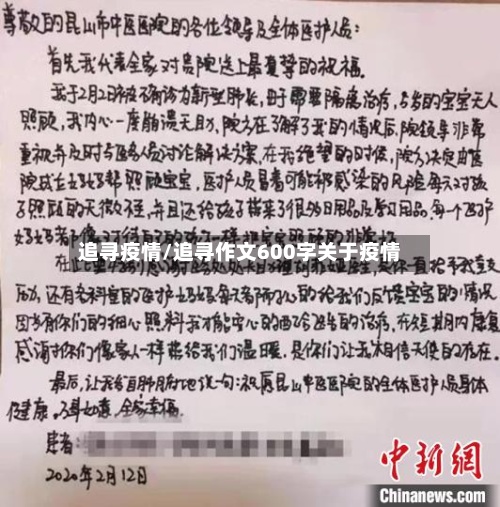 尊敬的昆山市中医医院的各位领导及全体医护人员:
首先我代表全家对贵院送上最真挚的祝福。
我于2月2日被确诊为新型肺炎,由于需要隔离治疗,5岁的宝宝无人
照顾,我内心一度崩溃无助,院方在了解了我的情况后,院领导非常
重视并及时与医务人员讨论解决方案,在我绝望的时候,院方决定由医
院成立妈妈帮照顾宝宝,医护人员冒着可能被感染的风险每天对孩
子照顾的无微不至,并且还给孩子带来了很多日用品及学习用品,每一个医护
追寻疫情/追寻作文600字关于疫情
动,还有老科室的医护妈妈每天都
给我们反馈宝宝的情况
因为有你们的细心照料我才能安心的配合医生的治疗,在短期内康复
感谢你们像家人一样带给我们温暖,是你们让我相信天使的存在。
最后,让我发自肺腑地说一句:祝愿昆山中医医院的全体医护人员身体
健康,万事如意,全家幸福。
患者:
2020年2月12日
中新网
Chinanews.com